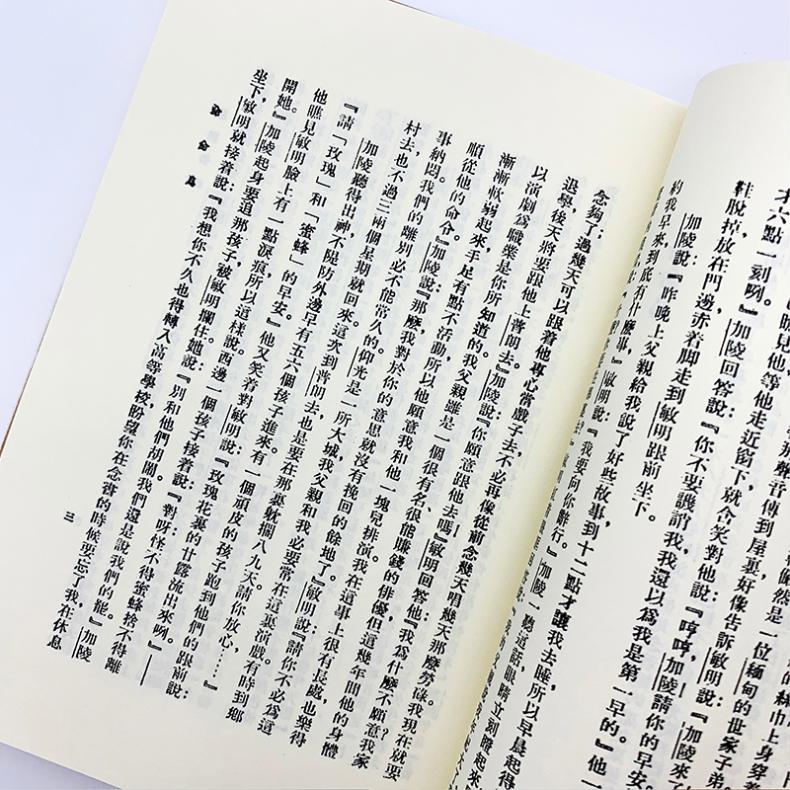 的絲巾上身穿着
儼然是一位緬甸的世家子弟。
聲音傳到屋裏好像告訴敏明說：『加陵來了
瞧見他，等他走近窗下，就含笑對他說：『哼哼，加陵請你的早安。
才六點一刻咧。』加陵回答說：『你不要譏誚我，我還以爲我是第一早的。』他一
鞋脫掉放在門邊赤着脚走到敏明跟前坐下。
加陵說：『昨晚上父親給我說了好些故事，到十二點才讓我去睡，所以早晨起得
約我早來，到底有什麼事？』敏明說：『我要向你辭行。』加陵一聽這話，眼睛立刻瞪起來
念夠了；過幾天可以跟着他專心當戲子去，不必再像從前念幾天唱幾天那麼勞碌。我現在就要
退學，後天將要跟他上普朗去。』加陵說：『你願意跟他去嗎？』敏明回答他：『我爲什麼不願意？我家
以演劇爲職業是你所知道的。我父親雖是一個很有名、很能賺錢的俳優，但這幾年間他的身體
漸漸軟弱起來，手足有點不活動，所以他願意我和他一塊兒排演。我在這事上很有長處，也樂得
順從他的命令。』加陵說：『那麼，我對於你的意思就沒有挽回的餘地了。』敏明說：『請你不必爲這
事納悶。我們的離別必不能長久的。仰光是一所大城，我父親和我必要常在這裏演戲。有時到鄉
村去，也不過三兩個星期就回來。這次到普朗去，也是要在那裏躭擱八九天。請你放心……』
加陵聽得出神，不隄防外邊早有五六個孩子進來，有一個頑皮的孩子跑到他們的跟前說：
『請「玫瑰」和「蜜蜂」的早安。』他又笑着對敏明說：『玫瑰花裏的甘露流出來咧。』——
他瞧見敏明臉上有一點淚痕，所以這樣說。西邊一個孩子接着說：『對呀！怪不得蜜蜂捨不得離
開她。』加陵起身要追那孩子，被敏明攔住。她說：『別和他們胡鬧。我們還是說我們的罷。』加陵
坐下，敏明就接着說：『我想你不久也得轉入高等學校，盼望你在念書的時候要忘了我，在休息
三